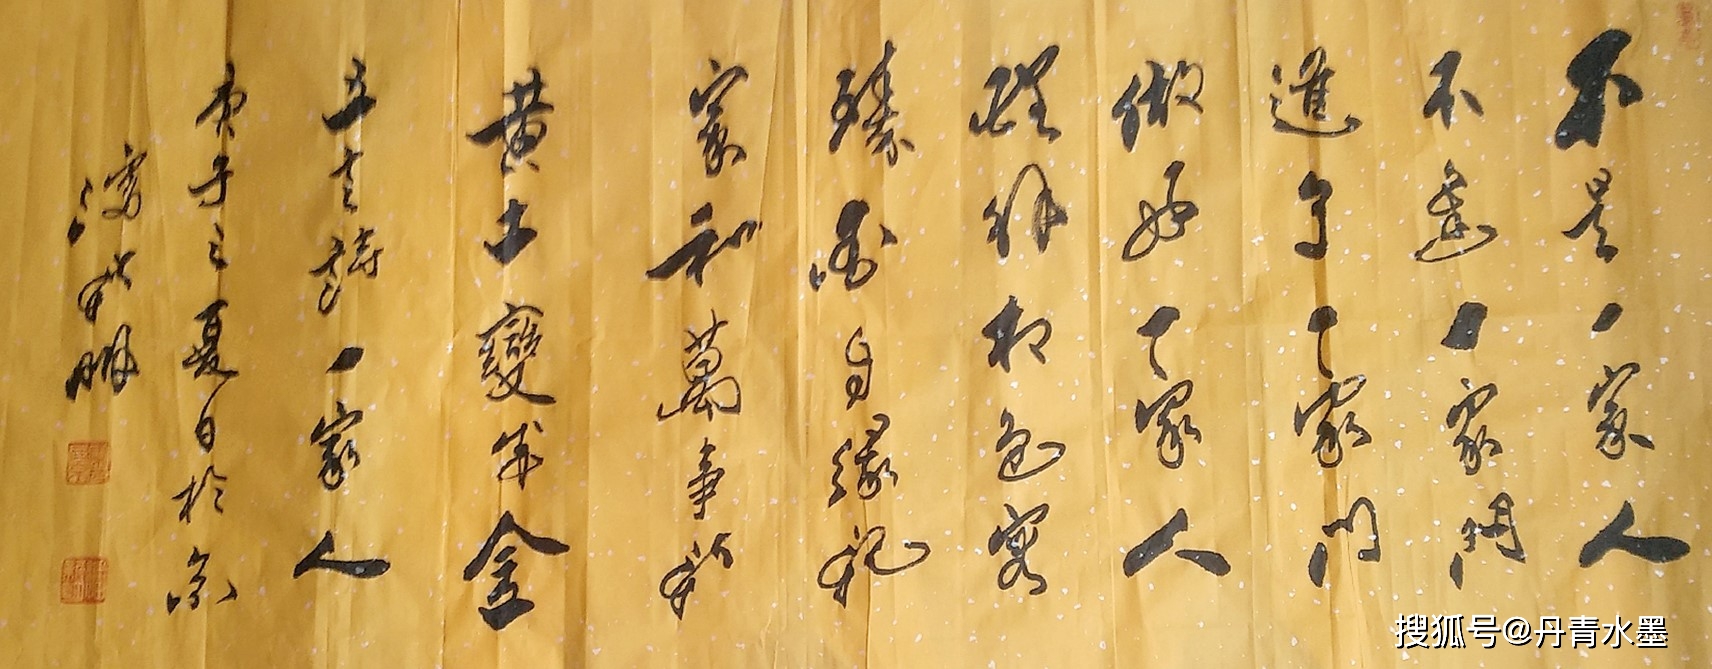 不是一家人
不進一家門
進了一家門
做好一家人
理解相包容
珍惜自緣祀
家和萬事興
黃土變成金
五言詩一家人
庚子之夏日於京
秋明
搜狐号@丹青水墨